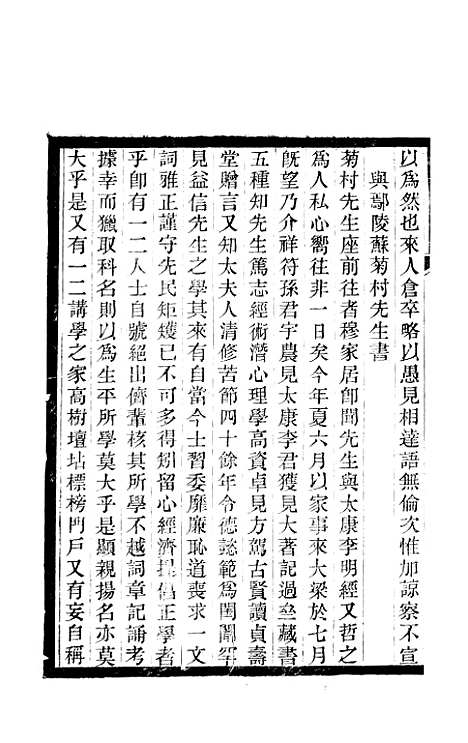 以為然也來人倉卒略以愚見相達語無倫次惟加諒察不宣
與鄢陵蘇菊村先生書
菊村先生座前往者穆家居卽聞先生與太康李明經又哲之
為人私心嚮往非一日矣今年夏六月以家事來大梁於七月
旣望乃介祥符孫君宇農見太康李君獲見大著記過亝藏書
五種知先生篤志經術潛心理學高資卓見方駕古賢讀貞壽
堂贈言又知太夫人清修苦節四十餘年令德懿範為閨閫罕
見益信先生之學其來有自當今士習委靡廉恥道喪求一文
詞雅正謹守先民矩矱已不可多得矧留心經濟提倡正學者
乎卽有一二人士自號絕出儕輩核其所學不越詞章記誦考
據幸而獵取科名則以為生平所學莫大乎是顯親揚名亦莫
大乎是又有一二講學之家高樹壇坫標榜門戶又有妄自稱